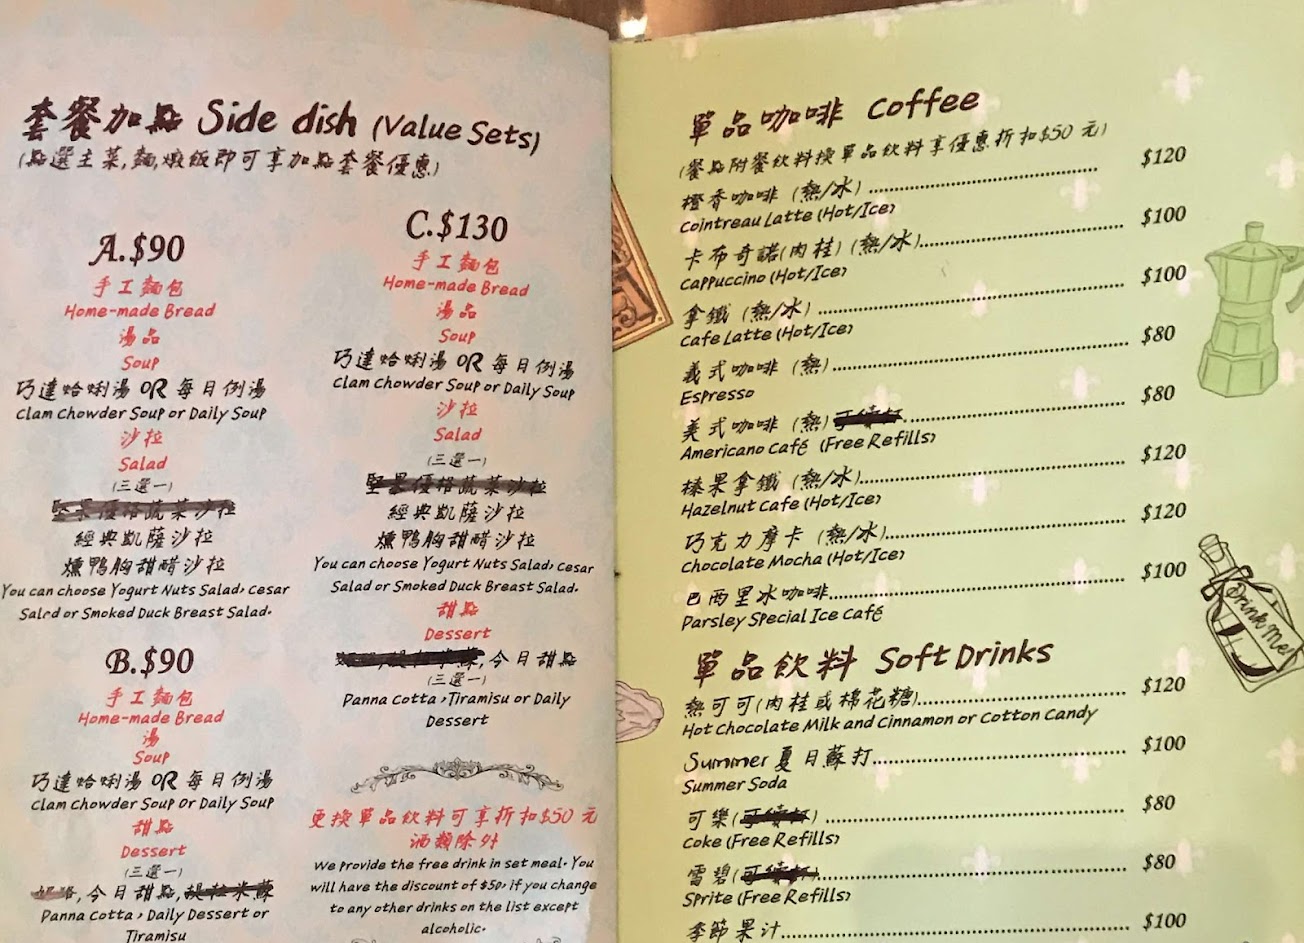 套餐加點 Side dish (Value Sets)
(點選主菜,麵,燉飯即可享加點套餐優惠)
A.$90
手工麵包
Home-made Bread
湯品
Soup
巧達蛤蜊湯 OR 每日例湯
Clam Chowder Soup or Daily Soup
沙拉
Salad
(三選一)
堅果優格蔬菜沙拉
經典凱薩沙拉
燻鴨胸甜醋沙拉
You can choose Yogurt Nuts Salad, Cesar
Salad or Smoked Duck Breast Salad.
B.$90
手工麵包
Home-made Bread
湯
Soup
巧達蛤蜊湯 OR 每日例湯
Clam Chowder Soup or Daily Soup
甜點
Dessert
(三選一)
奶酪,今日甜點,提拉米蘇
Panna Cotta , Daily Dessert or
Tiramisu
C.$130
手工麵包
Home-made Bread
湯品
Soup
巧達蛤蜊湯 OR 每日例湯
Clam Chowder Soup or Daily Soup
沙拉
Salad
(三選一)
堅果優格蔬菜沙拉
經典凱薩沙拉
燻鴨胸甜醋沙拉
You can choose Yogurt Nuts Salad, Cesar
Salad or Smoked Duck Breast Salad.
甜點
Dessert
,今日甜點
(三選一)
Panna Cotta ,Tiramisu or Daily
Dessert
更換單品飲料可享折扣$50 元
酒類除外
We provide the free drink in set meal. You
will have the discount of $50, if you change
to any other drinks on the list except
alcoholic.
單品咖啡 Coffee
(餐點附餐飲料換單品飲料享優惠折扣$50 元)
橙香咖啡 (熱/冰) ........ $120
Cointreau Latte (Hot/Ice)
卡布奇諾(肉桂) (熱/冰)........ $100
Cappuccino (Hot/Ice)
拿鐵 (熱/冰) ........ $100
Cafe Latte (Hot/Ice)
義式咖啡 (熱)........ $80
Espresso
美式咖啡 (熱) 可續杯........ $80
Americano Café (Free Refills)
榛果拿鐵 (熱/冰)........ $120
Hazelnut Cafe (Hot/Ice)
巧克力摩卡 (熱/冰)........ $120
Chocolate Mocha (Hot/Ice)
巴西里冰咖啡........ $100
Parsley Special Ice Café
Drink Me!
單品飲料 Soft Drinks
熱可可(肉桂或棉花糖)........ $120
Hot Chocolate Milk and Cinnamon or Cotton Candy
Summer 夏日蘇打........ $100
Summer Soda
可樂(可續杯) ........ $80
Coke (Free Refills)
雪碧(可續杯)........ $80
Sprite (Free Refills)
季節果汁........ $100